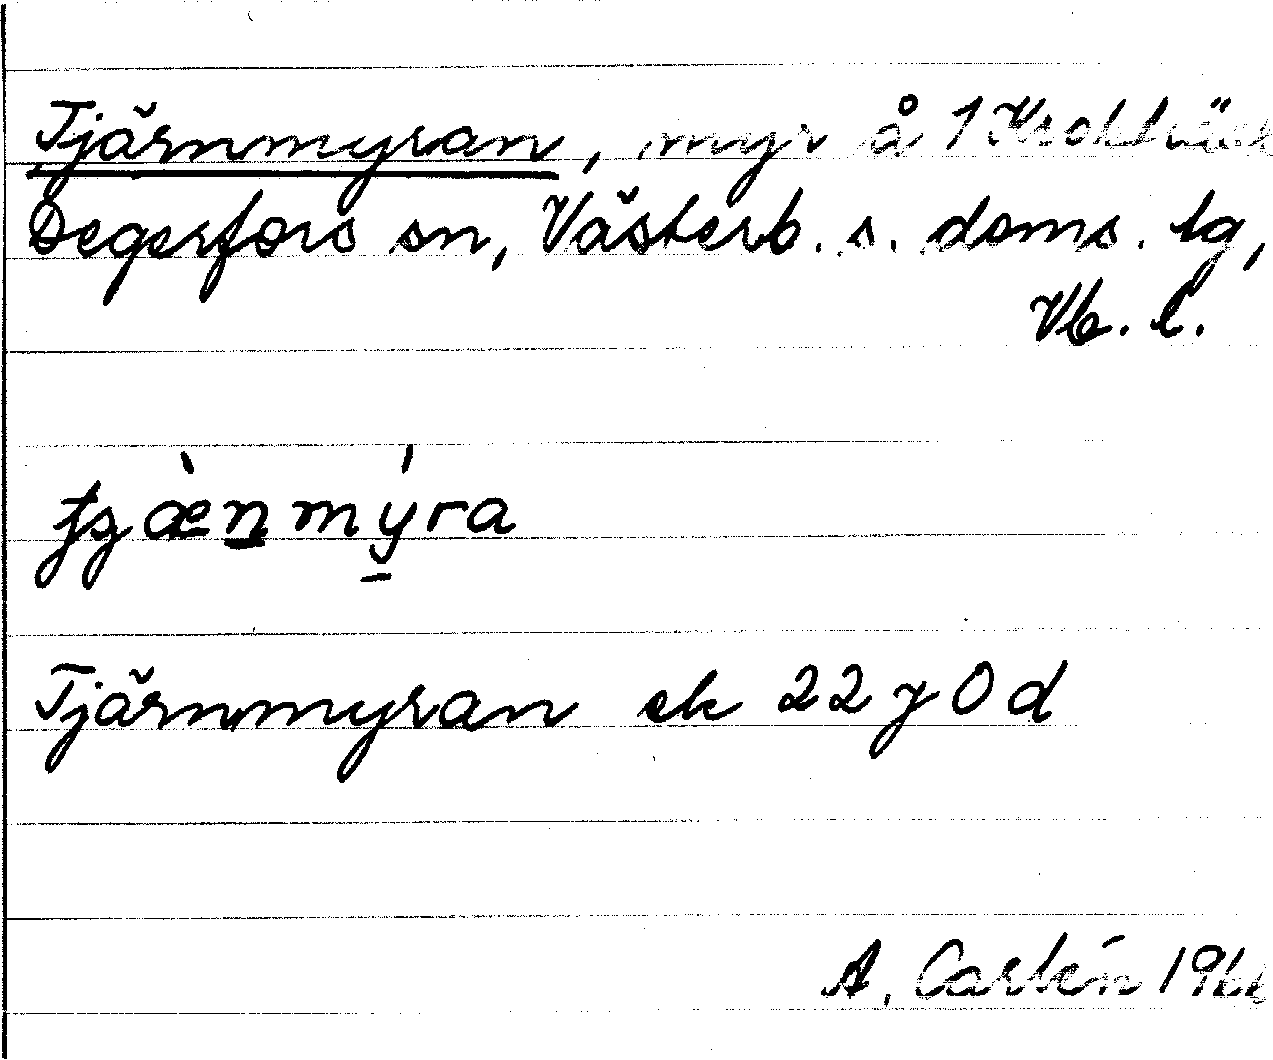 Tjärnmyran, myr å 1 Krokbäck
Degerfors sn, Västerb. s. doms. tg,
Vb. l.
Tjärnmyran ek 22 7 0 d
A. Carlén 1966